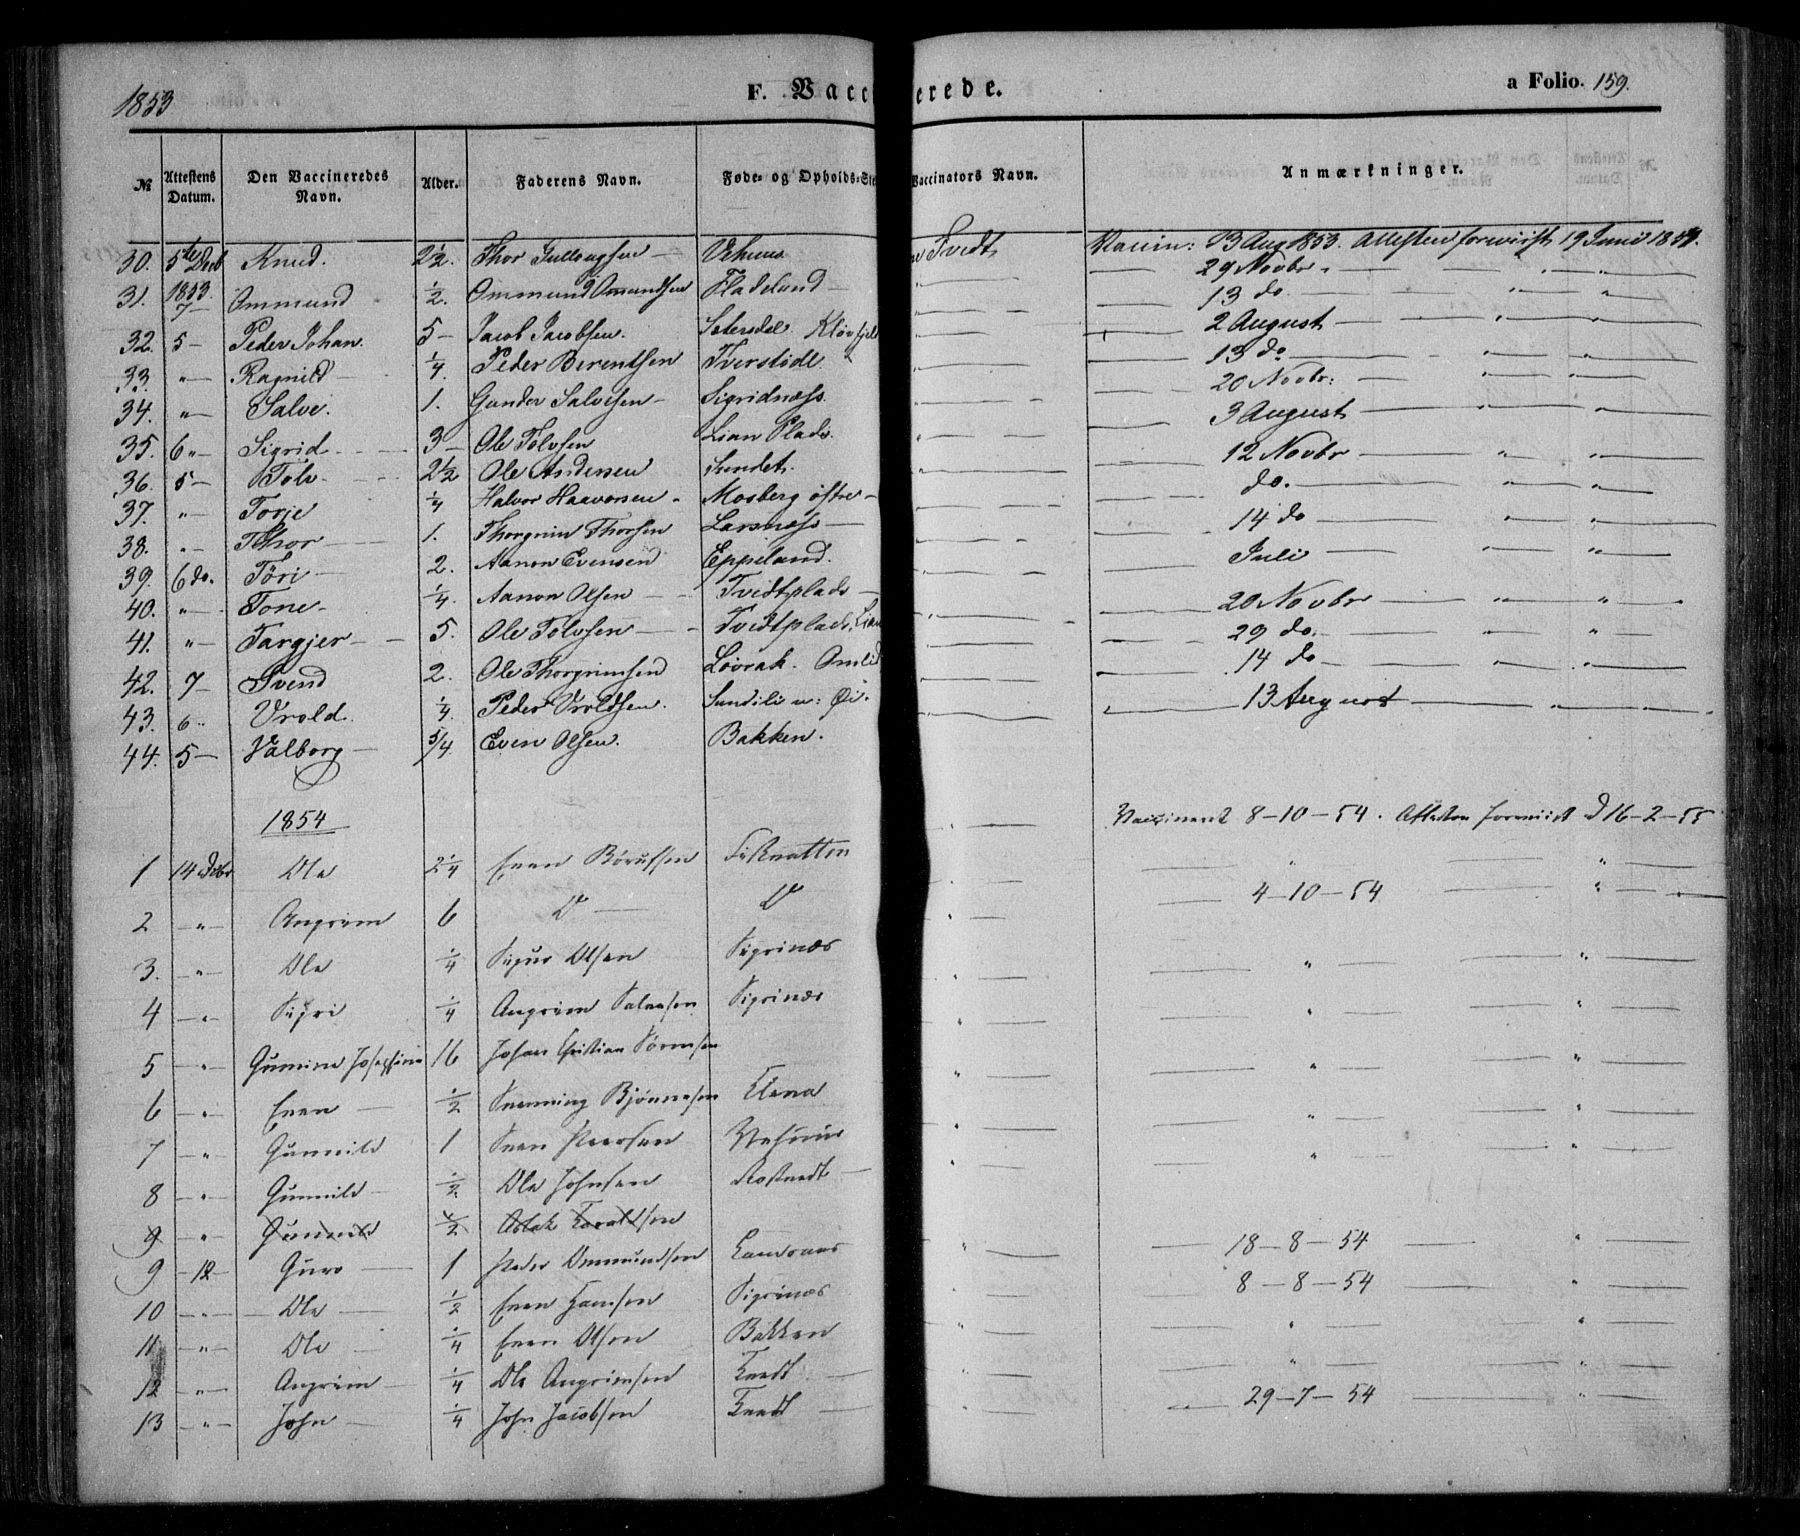 1853 F. Vacc erede. a Folio. 159.
№ Attestens Datum. Den Vaccineredes Navn. Alder. Faderens Navn. Føde- og Opholds-Ste Vaccinators Navn. Anmærkninger.
30. 5te Decb Knud. 2½. Thor Gullougsen Vehuus Tvedt Vaccin: 13 Aug 1853. Attesten foreviist 19 Juni 1854.
31. 1853. 7 — Ommund ½. Ommund Omundsen Fladeland — 29 Novbr. " "
32. 5 — Peder Johan. 5 — Jacob Jacobsen. Setersdal Kløvfjel " 13 do. " "
33. " — Ragnild ¼. Peder Berentsen Tverstøde " 2 August " "
34. " — Salve. 1. Gunder Salvesen Sigridnæss. " 13 do " "
35. 6 " — Sigrid 3 — Ole Tolvsen Lian Plads. " 20 Novbr: " "
36. 5 — Tolv 2½ Ole Andersen Sundet. " 3 August " "
37. " — Torje ¼ Halvor Haavorsen Mosberg østre — " 12 Novbr " "
38. " — Thor 1. Thorgrim Thorsen Larsnæss " do. " "
39. 6 do. Tøri 2. Aanon Evensen Eppeland. " 14 do " "
40. " — Tone ¼. Aanon Olsen Tvedtplads " Juli " "
41. " — Targjer 5. Ole Tolvsen Tvedtplads, Lian " 20 Novbr " "
42. 7 — Svend 2. Ole Thorgrimsen Løvrak. Omlid " 29 do. " "
43. 6 " Vrold. ¼ Peder Vroldsen. Sundili u: Øi. " 14 do " "
44. 5 — Valborg 5/4. Even Olsen. Bakken. " 13 August
1854
1 14 Decbr Ole 2¼ Even Børufsen Vaccineret 8-10-54. Attesten foreviist d 16-2-55
2 " Angrim 6 D — D " " "
3. " Ole ¼ Sigur Olsen Sigrinæs " 4-10-54 "
4 " Sigri ¼ Angrim Salvesen Sigrinæs " " "
5 " Gumine Josephine 16 Johan Christian Sørensen " " "
6 " Even ½ Bjørnesen " " "
7 " Gunnild 1 Sven Peersen Vehuus " " "
8 " Gunnild ½. Ole Johnsen " " "
9 " Gunnild ½ Aslak Taraldsen
9 — 12 — Guro 1 Peder Ommundsen " 18-8-54 "
10 " Ole ½ Even Hansen Sigrinæs " 8-8-54 "
11 " Ole ¼ Even Olsen Bakken " " "
12 " Angrim ¼ Ole Angrimsen Tvedt " " "
13 " John ¼ John Jacobsen Tvedt " 29-7-54 "